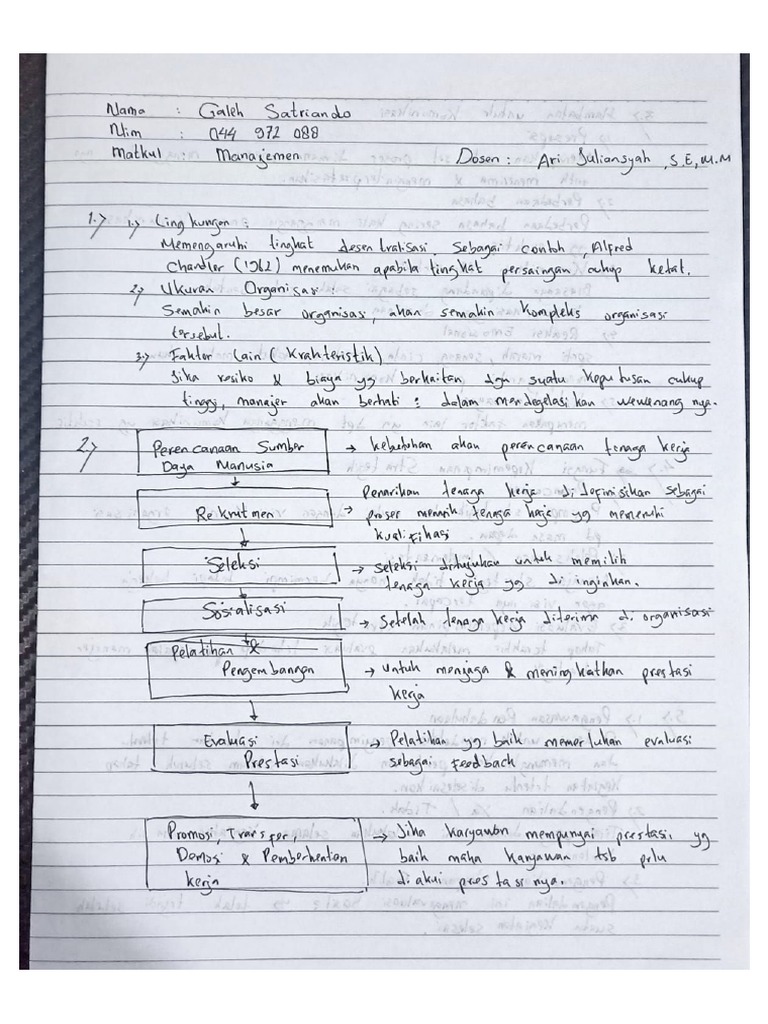 Nama : Galeh Satriando
Nim : 044 972 088
Matkul : Manajemen Dosen : Ari Juliansyah, S.E, M.M
1.) 1.) Lingkungan :
Memengaruhi tingkat desentralisasi. Sebagai contoh, Alfred
Chandler (1962) menemukan apabila tingkat persaingan cukup ketat.
2.) Ukuran Organisasi :
Semakin besar organisasi, akan semakin kompleks organisasi
tersebut.
3.) Faktor Lain ( Krakteristik )
Jika resiko & biaya yg berkaitan dgn suatu keputusan cukup
tinggi, manajer akan berhati : dalam mendegelasikan wewenang nya.
2.) Perencanaan Sumber Daya Manusia → kebutuhan akan perencanaan tenaga kerja
Rekruitmen → Penarikan tenaga kerja didefinisikan sebagai
proses menarik tenaga kerja yg memenuhi
kualifikasi.
Seleksi → Seleksi ditujukan untuk memilih
tenaga kerja yg di inginkan.
Sosialisasi → Setelah tenaga kerja diterima di organisasi
Pelatihan &
Pengembangan → untuk menjaga & meningkatkan prestasi
kerja
Evaluasi → Pelatihan yg baik memerlukan evaluasi
Prestasi sebagai Feedback
Promosi, Transfer, → Jika karyawan mempunyai prestasi yg
Demosi & Pemberhentian baik maka karyawan tsb prlu
kerja di akui prestasi nya.